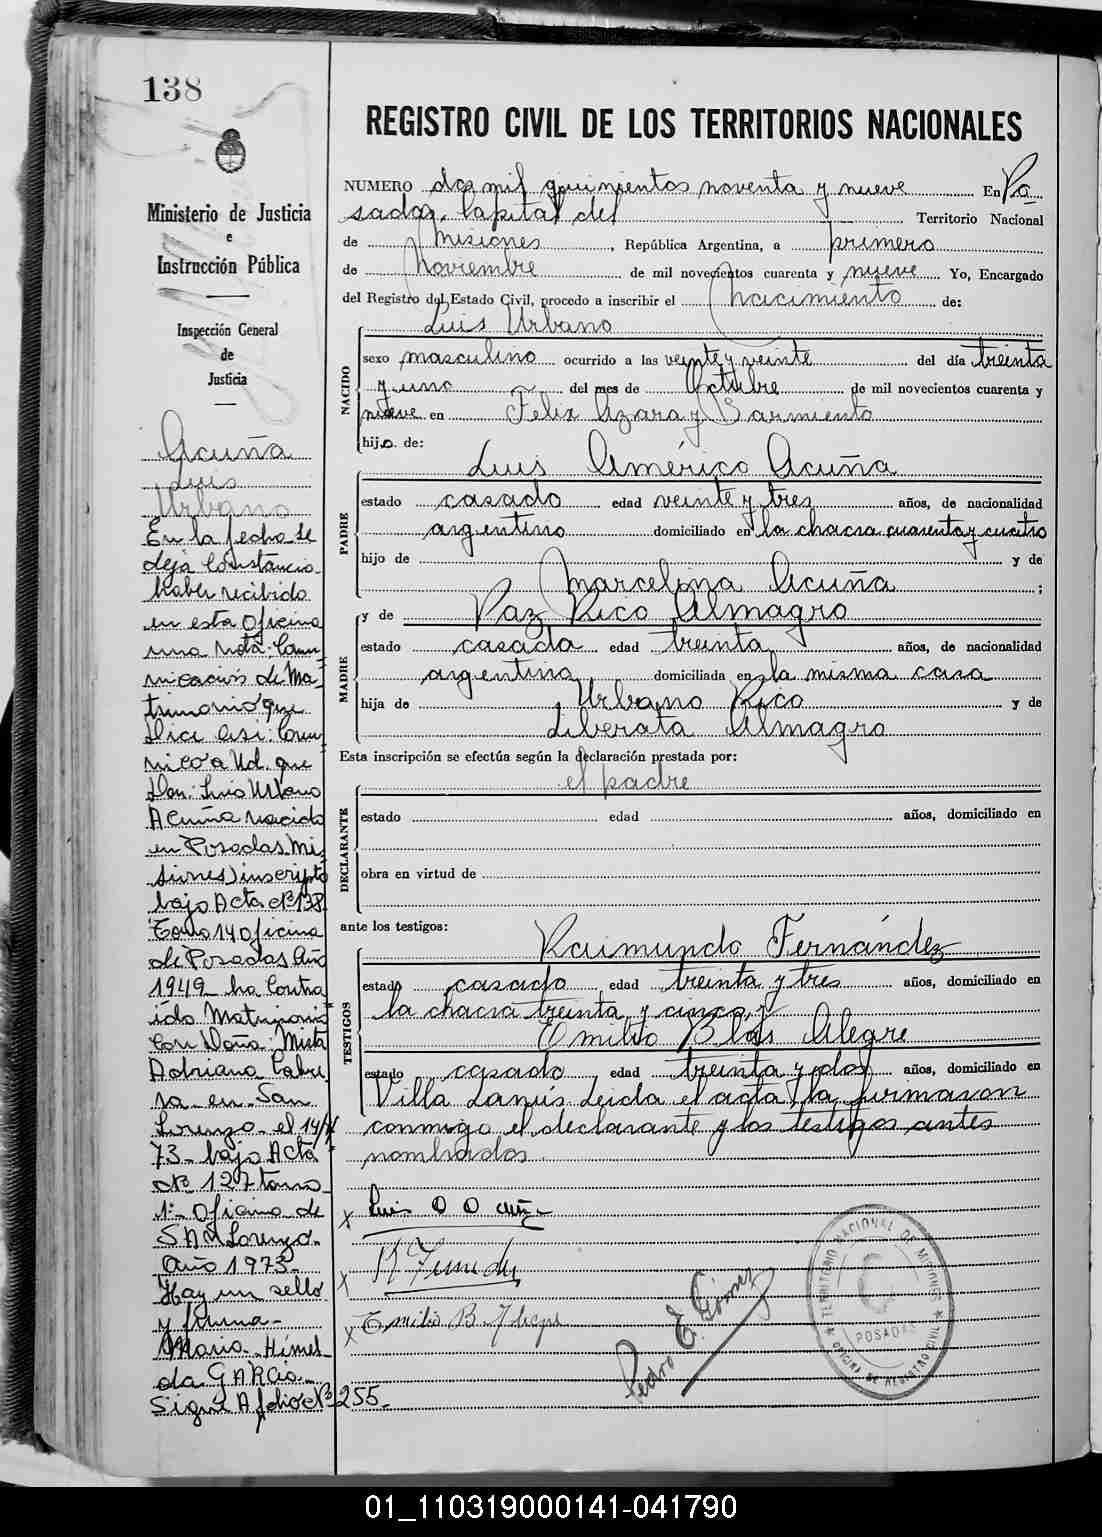 138
Ministerio de Justicia
e
Instrucción Pública
Inspección General
de
Justicia
Acuña
Luis
Urbano
En la fecha se
deja constancia
haber recibido
en esta Oficina
una nota Comu-
nicación de Ma-
trimonio que
dice así: Comu-
nico a Ud. que
Don: Luis Urbano
Acuña nacido
en Posadas (Mi-
siones) inscripto
bajo Acta Nº 138
Tomo 14 Oficina
de Posadas Año
1949 ha Contra
ído Matrimonio
con Doña: Mirta
Adriana Cabre
ra en San
Lorenzo el 14/
73 bajo Acta
Nº 127 tomo
1º Oficina de
SAN Lorenzo.
Año 1973-
Hay un sello
y firma-
Maria Himel-
da GARCIA-
Sigue A folio Nº 255.
REGISTRO CIVIL DE LOS TERRITORIOS NACIONALES
NUMERO dos mil quinientos noventa y nueve En Po-
sadas, Capital del Territorio Nacional
de Misiones, República Argentina, a primero
de Noviembre de mil novecientos cuarenta y nueve Yo, Encargado
del Registro del Estado Civil, procedo a inscribir el Nacimiento de:
NACIDO
Luis Urbano
sexo masculino ocurrido a las veinte y veinte del día treinta
y uno del mes de Octubre de mil novecientos cuarenta y
nueve en Felix Azara y Sarmiento
hijo de:
PADRE
Luis Américo Acuña
estado casado edad veinte y tres años, de nacionalidad
argentino domiciliado en la chacra cuarenta y cuatro
hijo de y de
Marcelina Acuña ;
MADRE
y de Paz Rico Almagro
estado casada edad treinta años, de nacionalidad
argentina domiciliada en la misma casa
hija de Urbano Rico y de
Liberata Almagro
Esta inscripción se efectúa según la declaración prestada por:
el padre
DECLARANTE
estado edad años, domiciliado en
obra en virtud de
ante los testigos:
TESTIGOS
Raimundo Fernández
estado casado edad treinta y tres años, domiciliado en
la chacra treinta y cinco, y
Emilio Blas Alegre
estado casado edad treinta y dos años, domiciliado en
Villa Lanús Leida el acta, la firmaron
conmigo el declarante y los testigos antes
nombrados.
x Luis A Acuña
x R Fernandez
x Emilio B. Alegre
Pedro E. Gómez
TERRITORIO NACIONAL DE MISIONES
POSADAS
OFICINA DE REGISTRO CIVIL
01_110319000141-041790